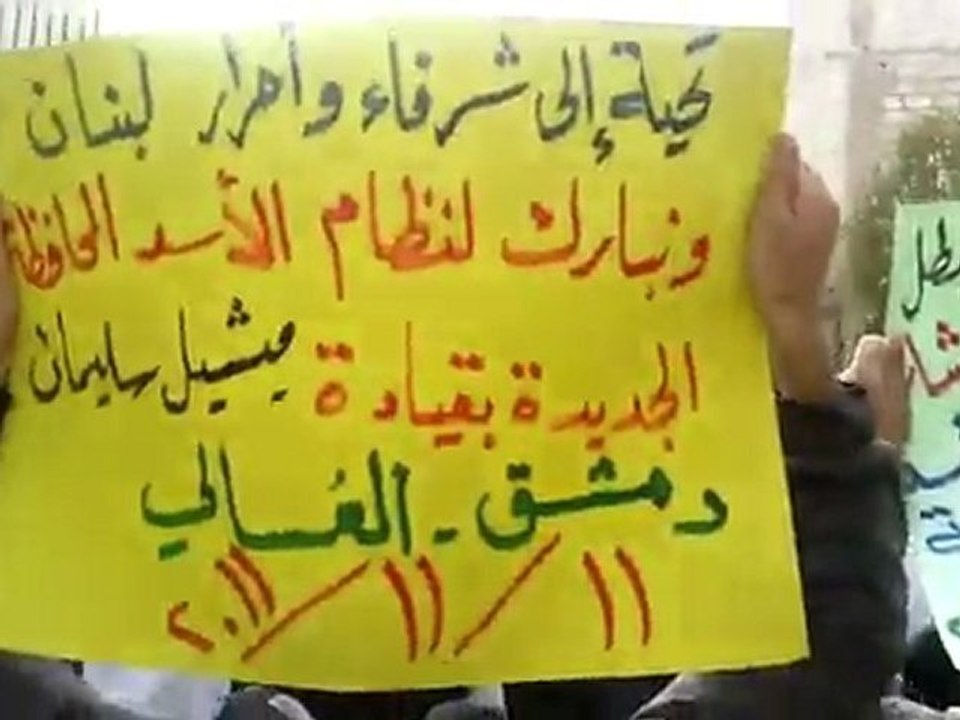 تحية إلى شرفاء وأحرار لبنان
ونبارك لنظام الأسد المحافظة
الجديدة بقيادة ميشيل سليمان
دمشق - العسالي
١١/١١/٢٠١١